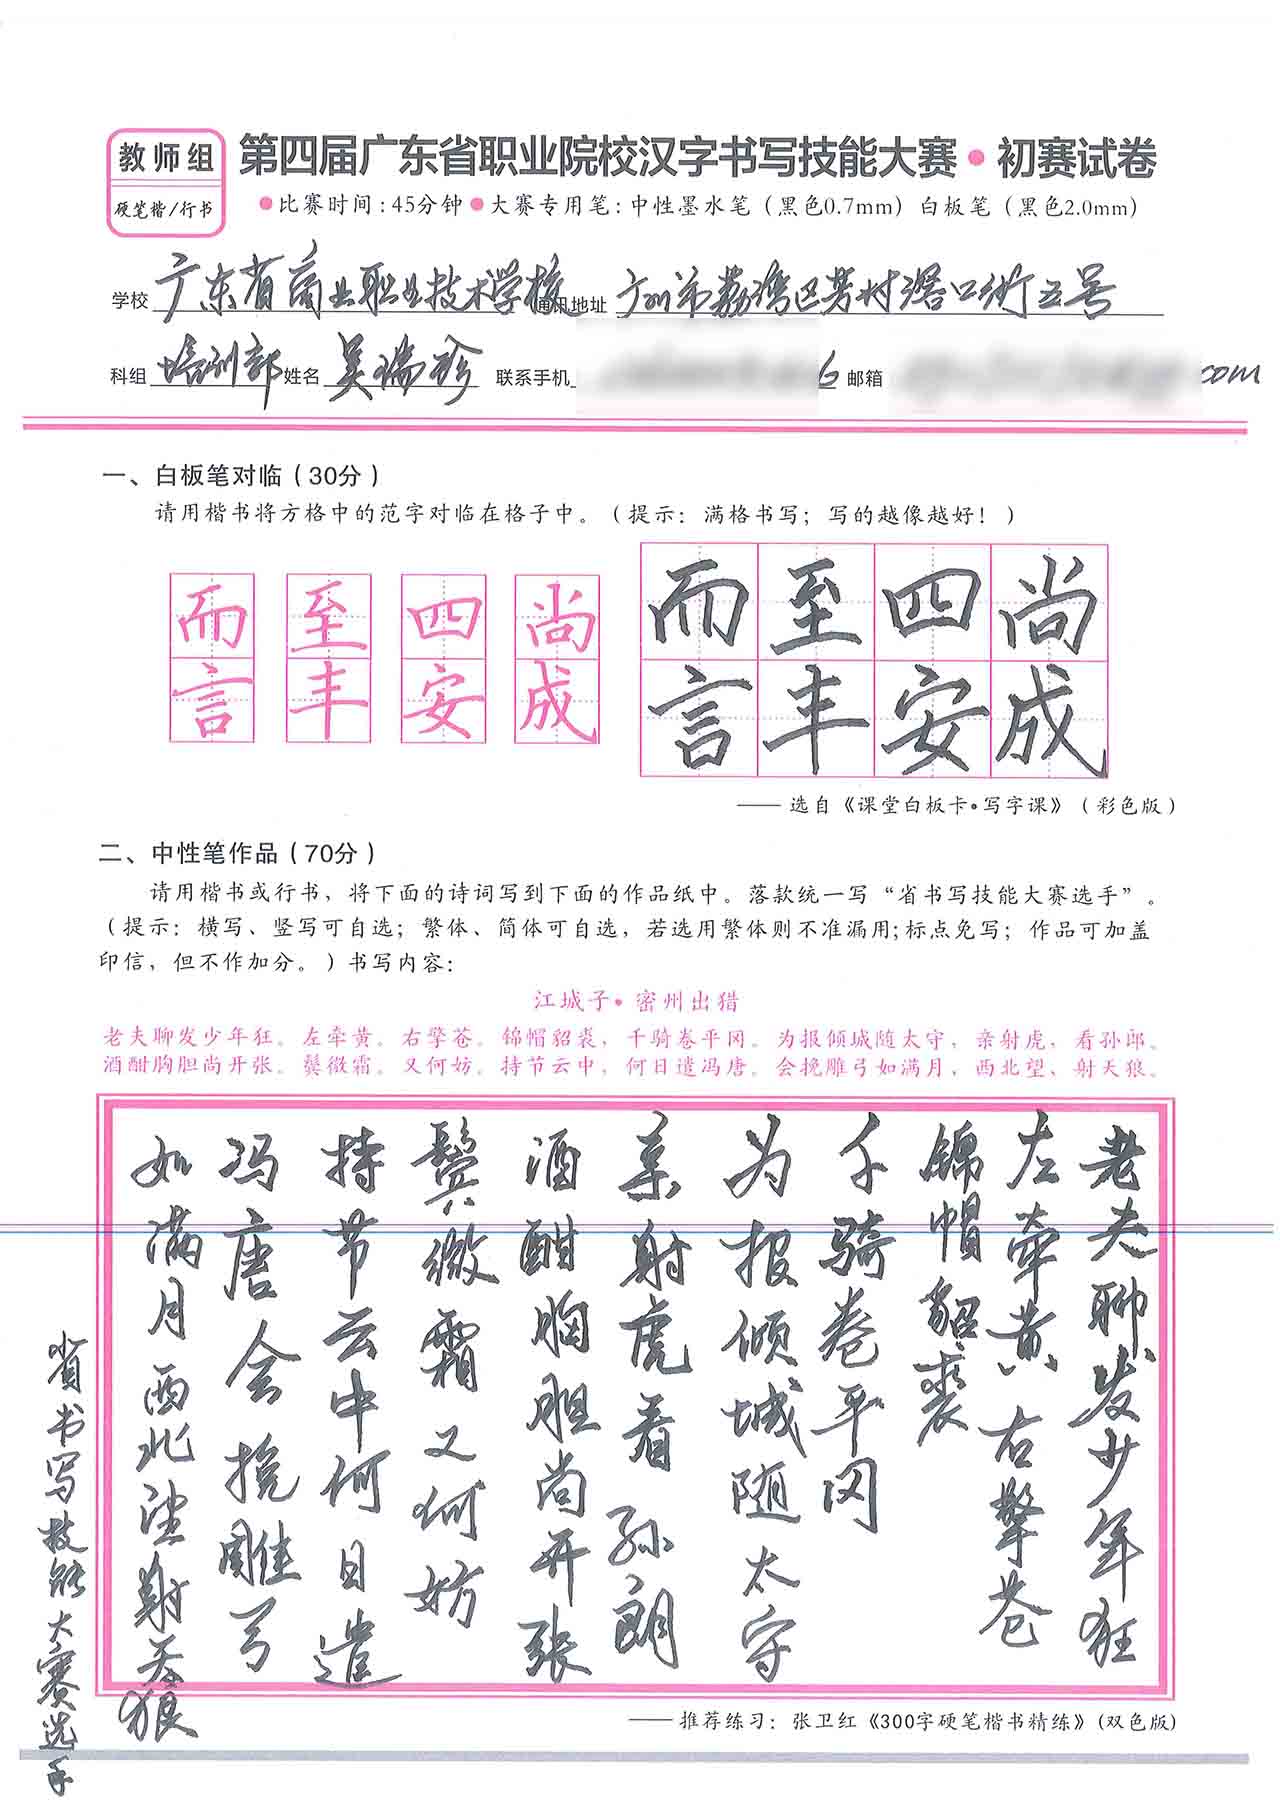 教师组
硬笔楷/行书
第四届广东省职业院校汉字书写技能大赛•初赛试卷
•比赛时间:45分钟•大赛专用笔:中性墨水笔（黑色0.7mm）白板笔（黑色2.0mm）
学校 广东省商业职业技术学校 通讯地址 广州市荔湾区芳村滘口街五号
科组 培训部 姓名 吴瑞珍 联系手机 6 邮箱 com
一、白板笔对临（30分）
请用楷书将方格中的范字对临在格子中。（提示：满格书写；写的越像越好！）
而 至 四 尚
言 丰 安 成
而 至 四 尚
言 丰 安 成
——选自《课堂白板卡•写字课》（彩色版）
二、中性笔作品（70分）
请用楷书或行书，将下面的诗词写到下面的作品纸中。落款统一写“省书写技能大赛选手”。
（提示：横写、竖写可自选；繁体、简体可自选，若选用繁体则不准漏用;标点免写；作品可加盖
印信，但不作加分。）书写内容：
江城子•密州出猎
老夫聊发少年狂。左牵黄。右擎苍。锦帽貂裘，千骑卷平冈。为报倾城随太守，亲射虎，看孙郎。
酒酣胸胆尚开张。鬓微霜。又何妨。持节云中，何日遣冯唐。会挽雕弓如满月，西北望，射天狼。
老夫聊发少年狂
左牵黄右擎苍
锦帽貂裘
千骑卷平冈
为报倾城随太守
亲射虎看孙朗
酒酣胸胆尚开张
鬓微霜又何妨
持节云中何日遣
冯唐会挽雕弓
如满月西北望射天狼
省书写技能大赛选手
——推荐练习：张卫红《300字硬笔楷书精练》(双色版)